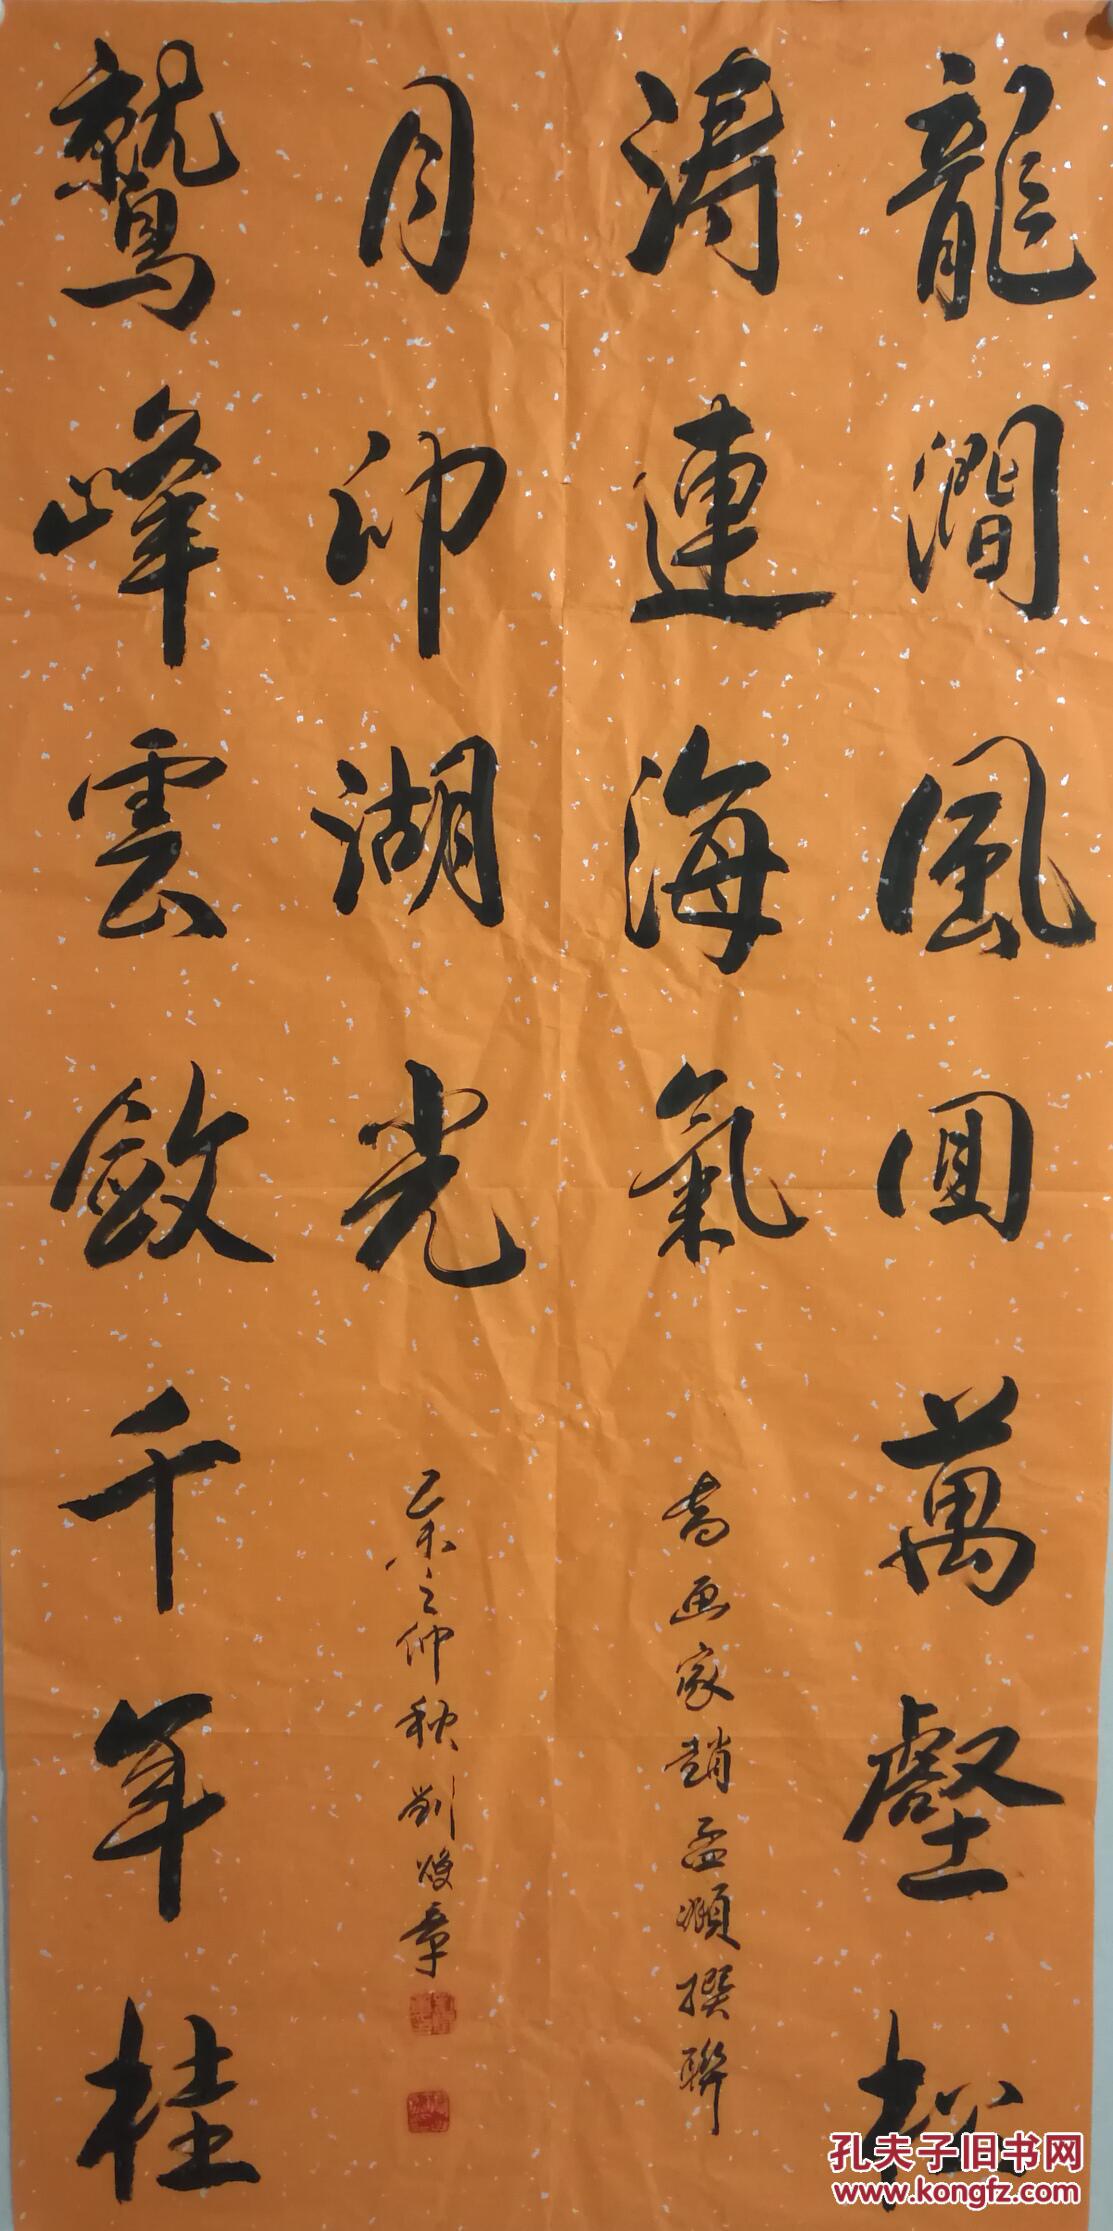 龍澗風回萬壑松
涛連海氣
書画家趙孟頫撰聯
鷲峰雲斂千年桂
月印湖光
乙未之仲秋劉章
孔夫子旧书网
www.kongfz.com